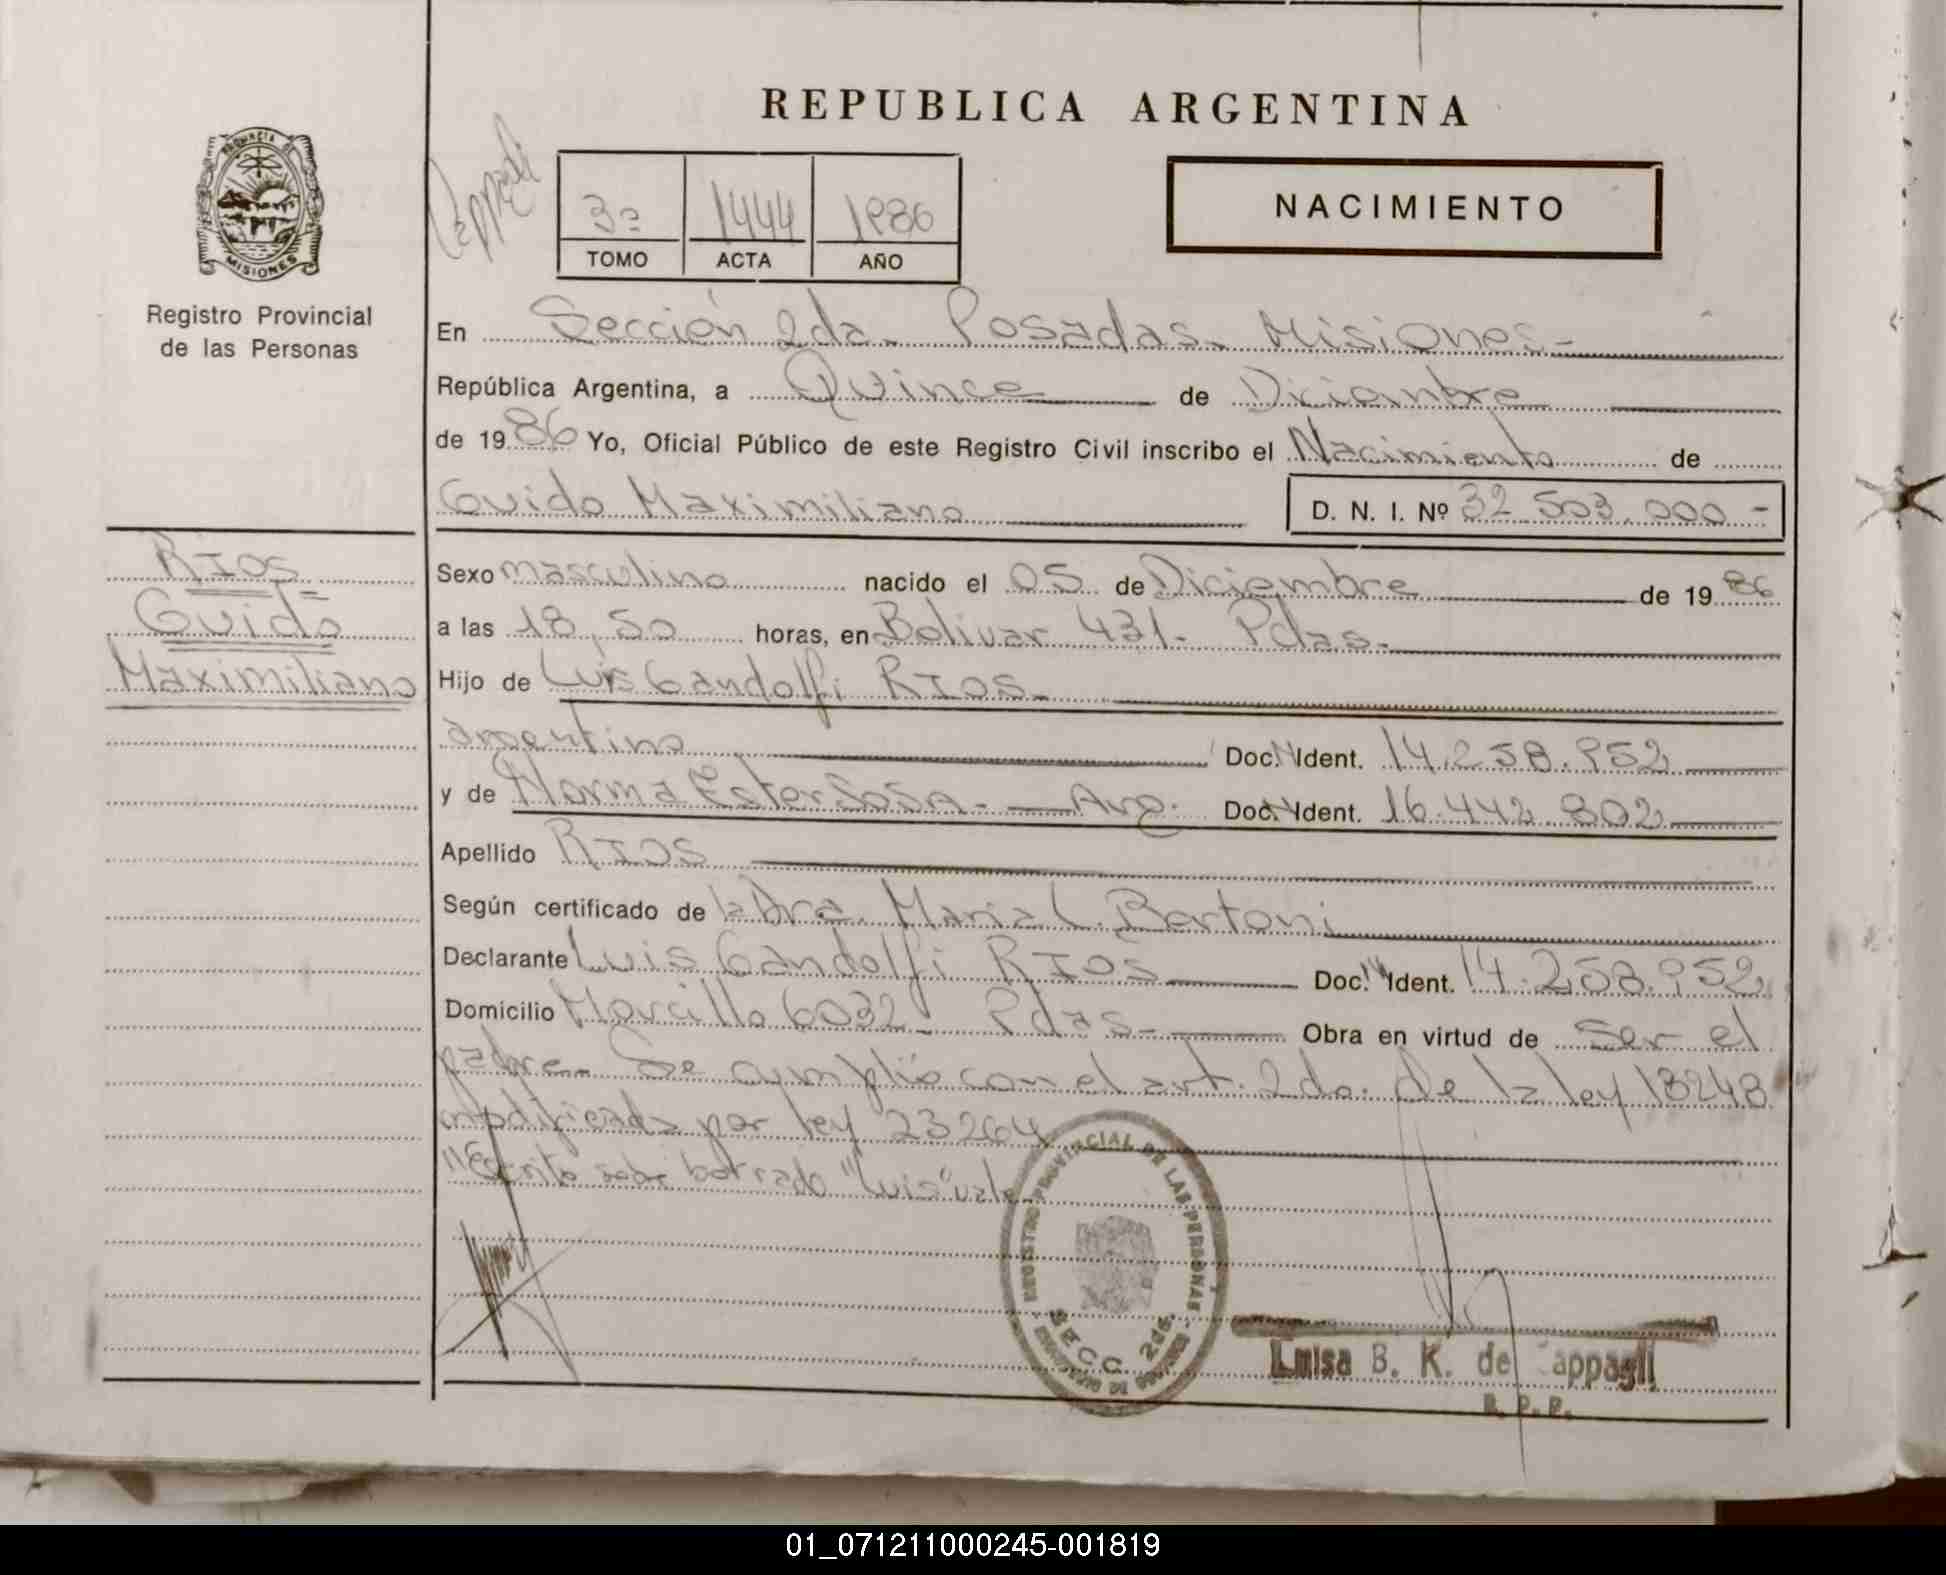 REPUBLICA ARGENTINA
PROVINCIA DE
MISIONES
Registro Provincial
de las Personas
3º 1444 1986
TOMO ACTA AÑO
NACIMIENTO
En Sección 2da. Posadas. Misiones.-
República Argentina, a Quince de Diciembre
de 1986 Yo, Oficial Público de este Registro Civil inscribo el Nacimiento de
Guido Maximiliano D. N. I. Nº 32.503.000 -
RIOS
Guido
Maximiliano
Sexo masculino nacido el 05 de Diciembre de 1986
a las 18,50 horas, en Bolivar 431.- Pdas.-
Hijo de Luis Gandolfi RIOS.-
argentino Doc. Ident. 14.258.952
y de Norma Ester SOSA.- Arg. Doc. Ident. 16.442.802
Apellido RIOS
Según certificado de la Dra. Maria L. Bertoni
Declarante Luis Gandolfi RIOS Doc. Ident. 14.258.952
Domicilio 6032.- Pdas.- Obra en virtud de ser el
padre.- Se cumplió con el art. 2do. de la ley 18248
modificada por ley 23264
"Escrito sobre borrado "Luis" vale
REGISTRO PROVINCIAL DE LAS PERSONAS
SECC. 2da.
Luisa B. K. de Cappagli
01_071211000245-001819